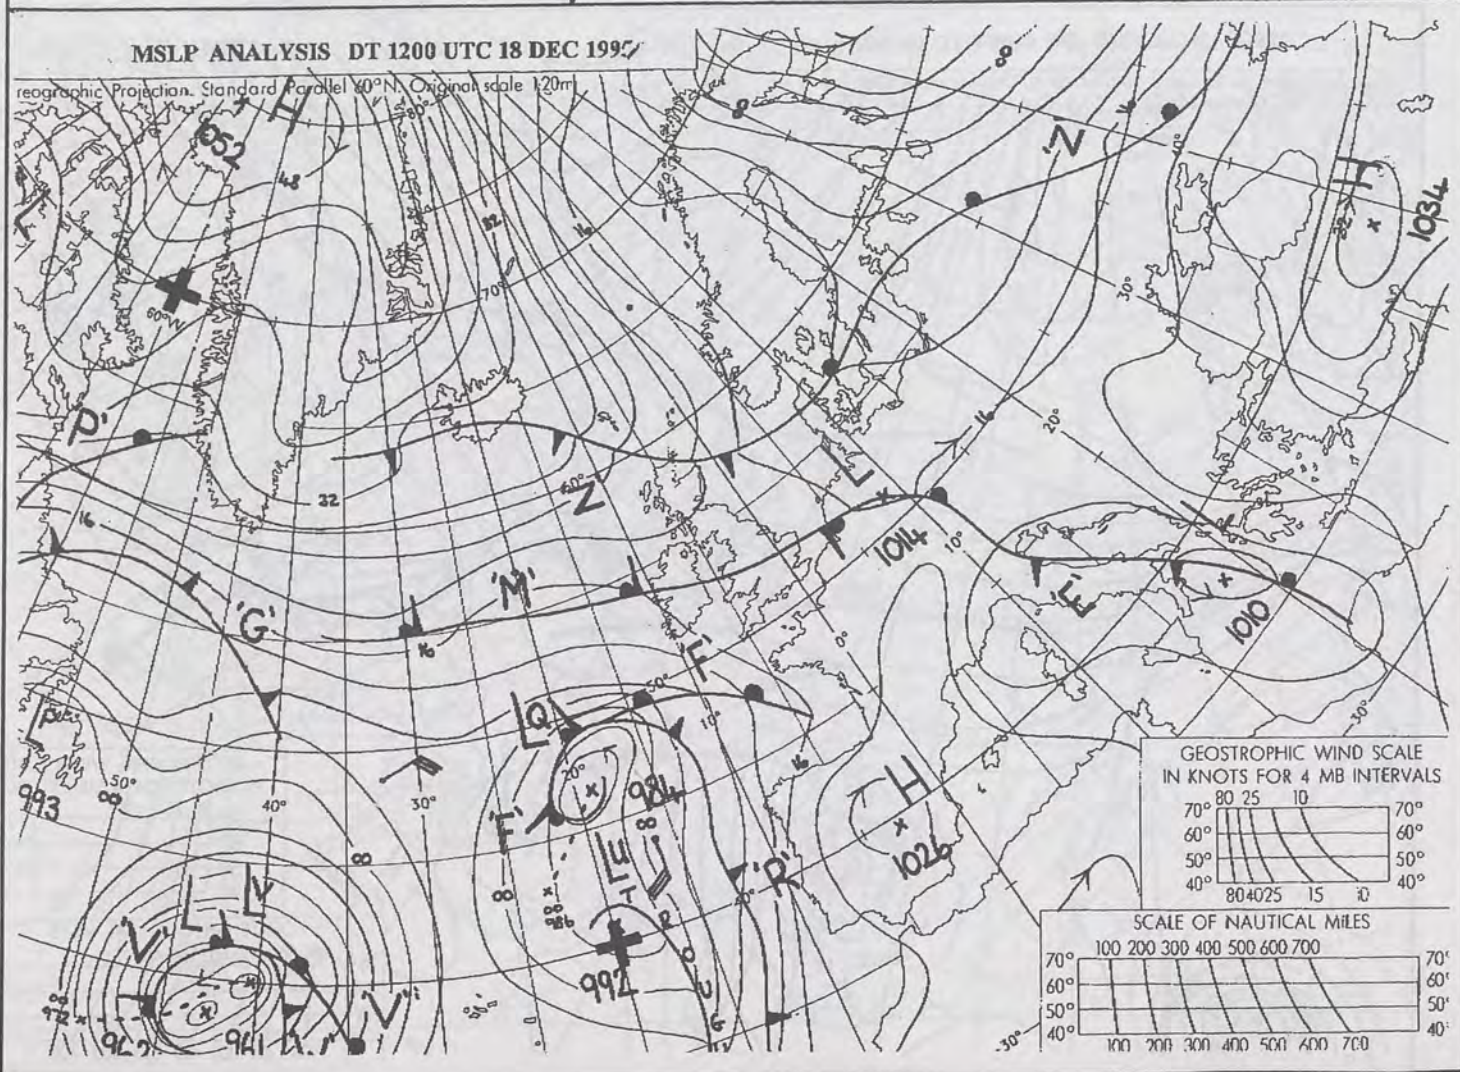 MSLP ANALYSIS DT 1200 UTC 18 DEC 1995
reographic Projection. Standard Parallel 60°N. Original scale 1:20m
H
1052
48
80°
32
16
8
8
'Z'
16
40°
H
1034
L
60°W
70°
30°
'P'
32
60°
'Z'
20°
16
L
1014
10°
16
'G'
'M'
16
'F'
'E'
1010
0°
30°
L
993
50°
8
40°
30°
LQ
50°
10°
16
20°
984
8
'F'
LU
8
8
986
TROUG
992
'R'
40°
H
1026
8
L
LV
'V'
'V'
972
962
961
'W'
30°
GEOSTROPHIC WIND SCALE
IN KNOTS FOR 4 MB INTERVALS
80 25 10
70° 70°
60° 60°
50° 50°
40° 40°
80 40 25 15 10
SCALE OF NAUTICAL MILES
100 200 300 400 500 600 700
70° 70°
60° 60°
50° 50°
40° 40°
100 200 300 400 500 600 700